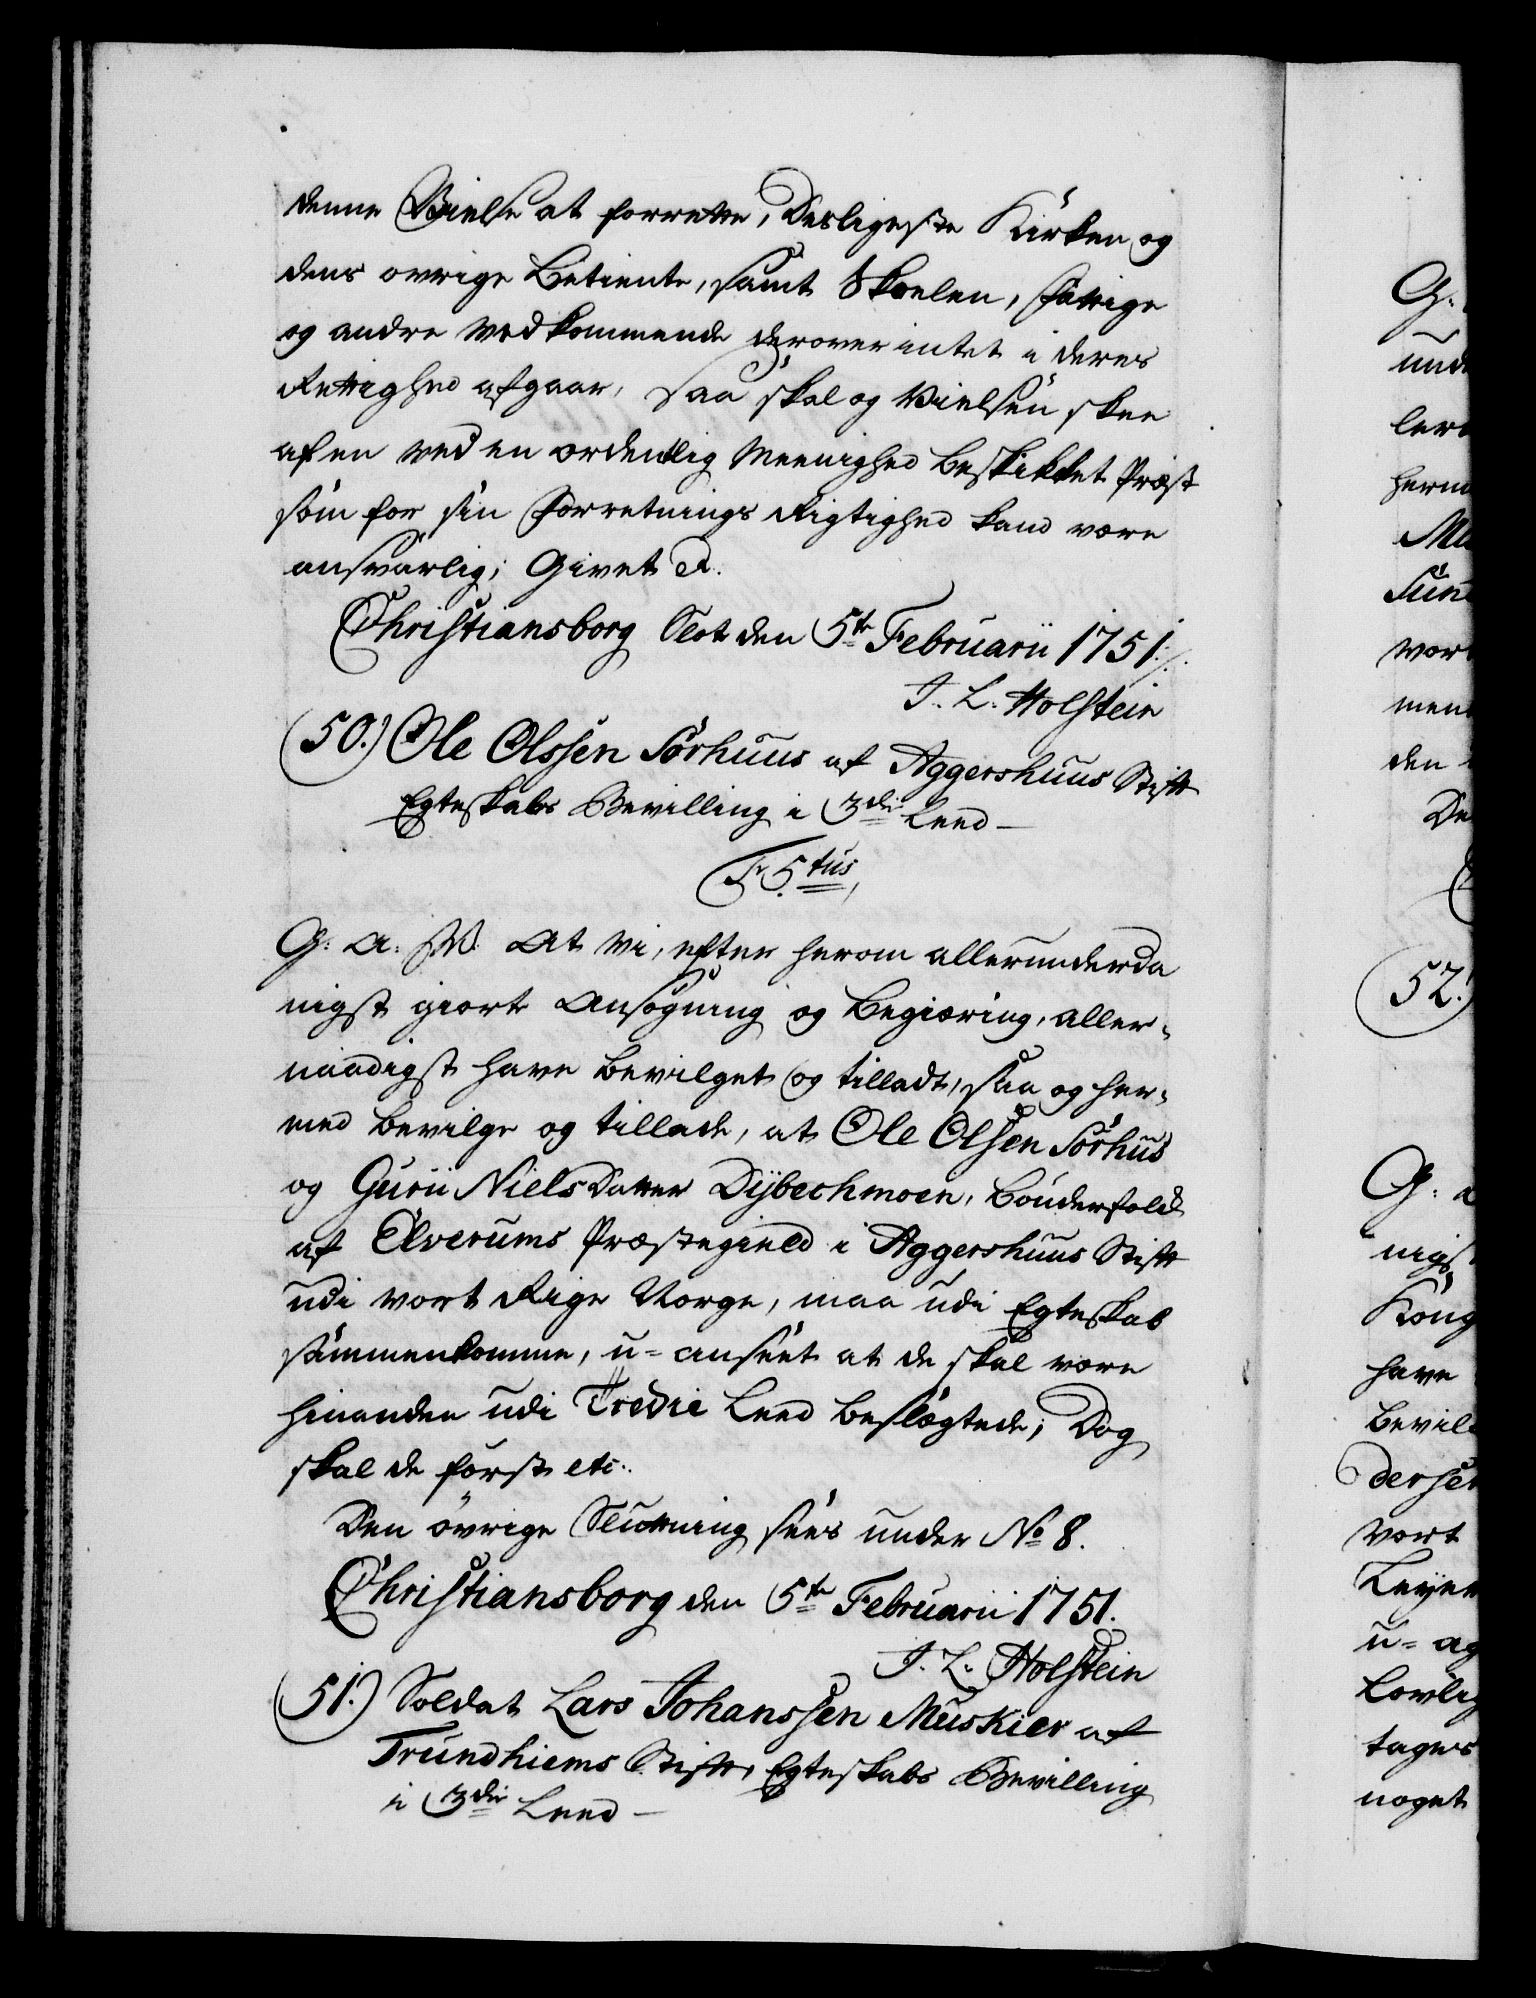 denne Vielse at forrette, Desligeste Kirken og
dens ovrige Betiente, samt Skolen, Fattige
og andre vedkommende derover intet i deres
Rettighed afgaar, saa skal og Vielsen skee
af en ved en ordentlig Meenighed beskikket Præst
som for sin Forretnings Rigtighed kand være
ansvarlig; Givet
Christiansborg Slot den 5te Februarii 1751./.
J. L. Holstein
(50.) Ole Olssen Sörhuus af Aggershuus Stift
Egteskabs Bevilling i 3die Leed –
F. 5tus
G: A: V. At Vi, efter herom allerunderda
nigst giort Ansögning og Begiæring, aller-
naadigst have bevilget og tilladt, saa og her-
med bevilge og tillade, at Ole Olsen Sörhus
og Gurii Niels Datter Dijbechmoen, bönderfolk
af Elverums Præstegield i Aggershuus Stift
udi vort Rige Norge, maa udi Egteskab
sammenkomme, u-anseet at de skal være
hinanden udi Tredie Leed beslægtede; Dog
skal de först etc.
Den övrige Slutning sees under No 8.
Christiansborg den 5te Februarii 1751.
J. L. Holstein
(51.) Soldat Lars Johanssen Muskier af
Trundhiems Stift, Egteskabs Bevilling
i 3die Leed –
G:
lere
vor
den
52.)
G: a
nigst
Kong
have
vort
u-ag
tages
noget